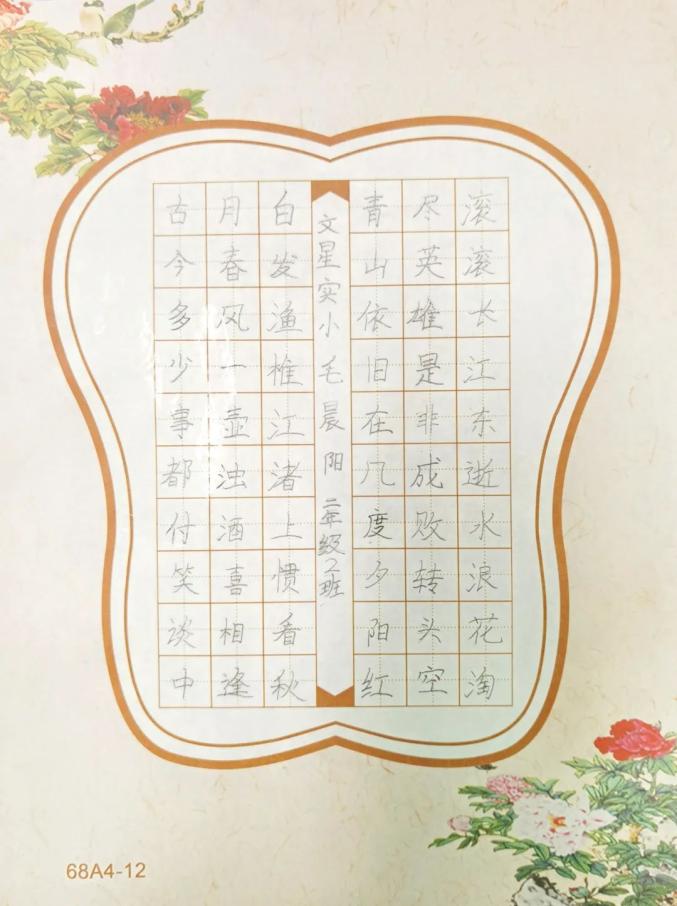 滚滚长江东逝水浪花淘
尽英雄是非成败转头空
青山依旧在几度夕阳红
文星实小 毛晨阳 二年级2班
白发渔椎江渚上惯看秋
月春风一壶浊酒喜相逢
古今多少事都付笑谈中
68A4-12